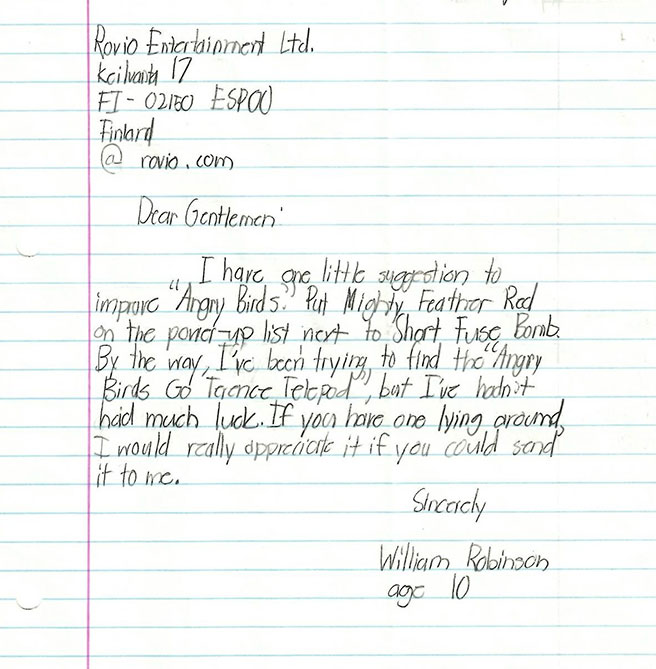 Rovio Entertainment Ltd.
Keilranta 17
FI - 02150 ESPOO
Finland
@ rovio.com
Dear Gentlemen:
I have one little suggestion to
improve "Angry Birds." Put Mighty Feather Red
on the power-up list next to Short Fuse Bomb.
By the way, I've been trying to find the "Angry
Birds Go Terence Telepod", but I've hadn't
had much luck. If you have one lying around,
I would really appreciate it if you could send
it to me.
Sincerely
William Robinson
age 10